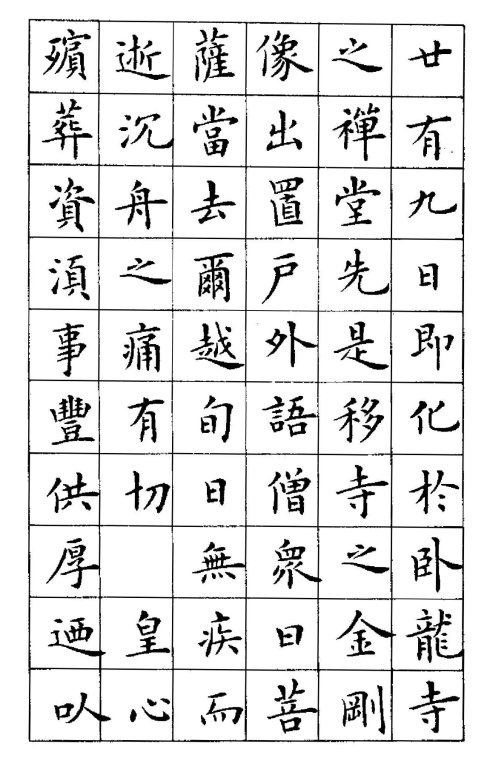 廿有九日即化於卧龍寺
之禪堂先是移寺之金剛
像出置戶外語僧衆曰菩
薩當去爾越旬日無疾而
逝沉舟之痛有切　皇心
殯葬資湏事豐供厚迺以